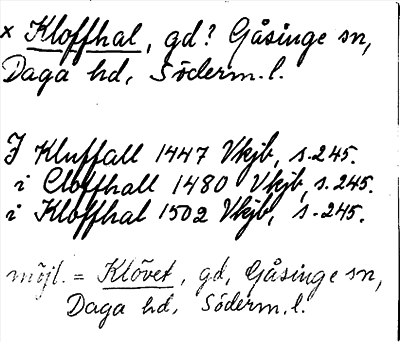 × Kloffhal, gd? Gåsinge sn,
Daga hd, Söderm. l.
I Kluffall 1447 Vkjb, s. 245.
i Cloffhall 1480 Vkjb, s. 245.
i Kloffhal 1502 Vkjb, s. 245.
möjl. = Klövet, gd, Gåsinge sn,
Daga hd, Söderm. l.